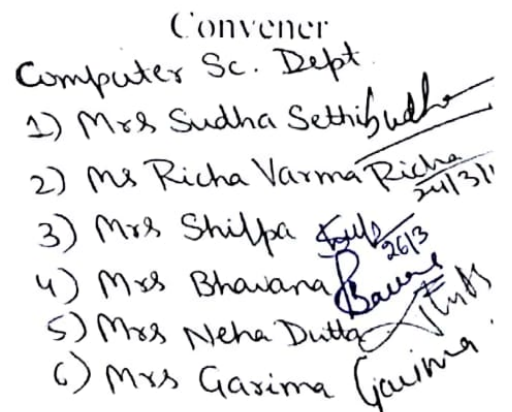 Convener
Computer Sc. Dept.
1) Mrs Sudha Sethi Sudha
2) Ms Richa Varma Richa 24/3/1
3) Mrs Shilpa 26/3
4) Mrs Bhavana
5) Mrs Neha Dutta
6) Mrs Garima Garima.